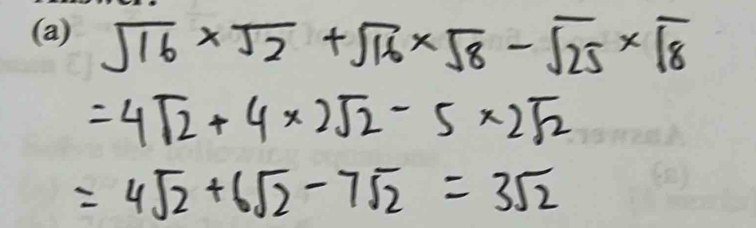 (a) √16 × √2 + √16 × √8 − √25 × √8
= 4√2 + 4 × 2√2 − 5 × 2√2
= 4√2 + 6√2 − 7√2 = 3√2